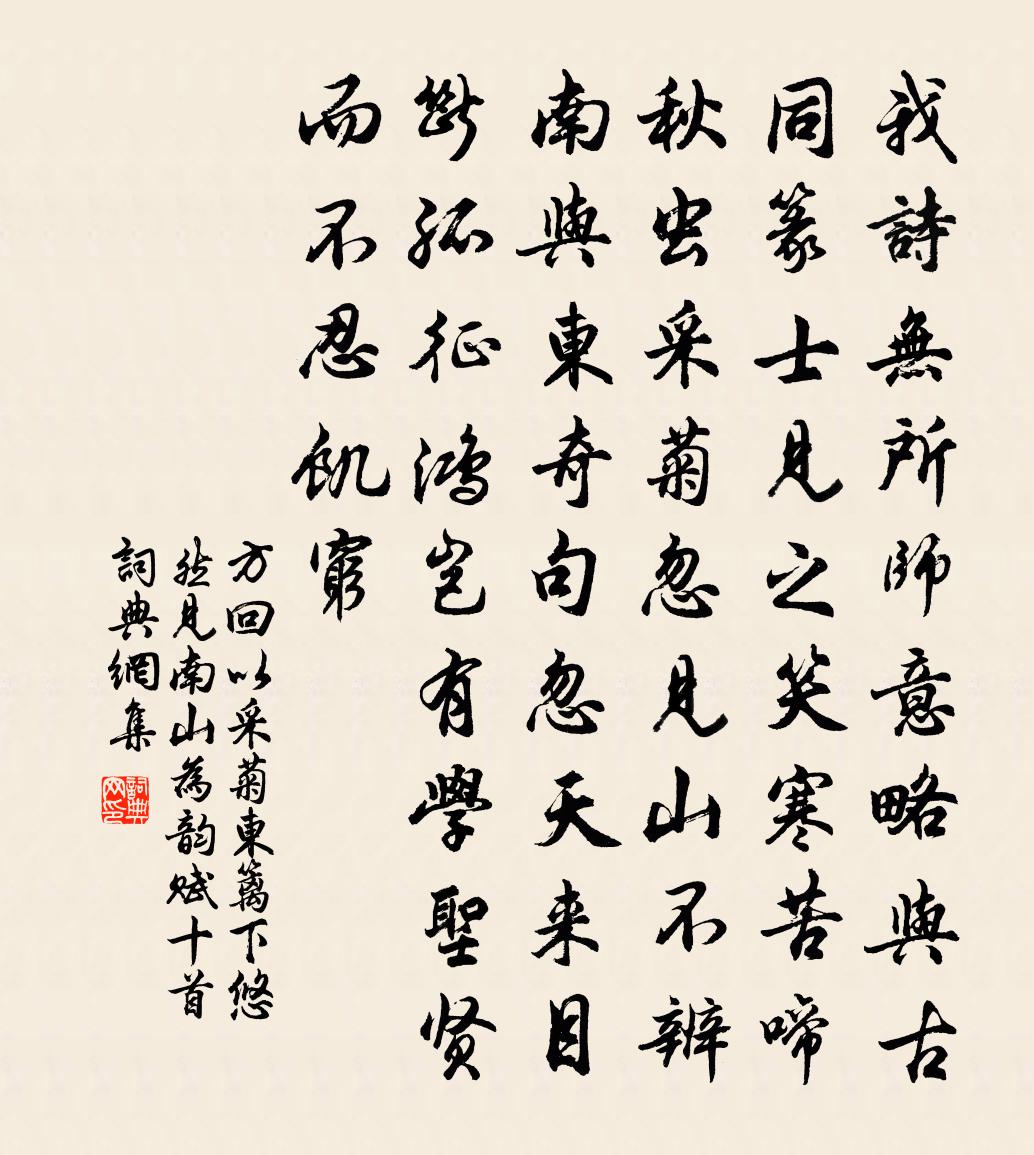 我詩無所師意略與古
同篆士見之笑寒苦啼
秋虫采菊忽見山不辨
南與東奇句忽天来目
斷孤征鴻豈有學聖贤
而不忍飢窮
方回以采菊東篱下悠
然見南山為韵赋十首
詞典網集
詞典网印